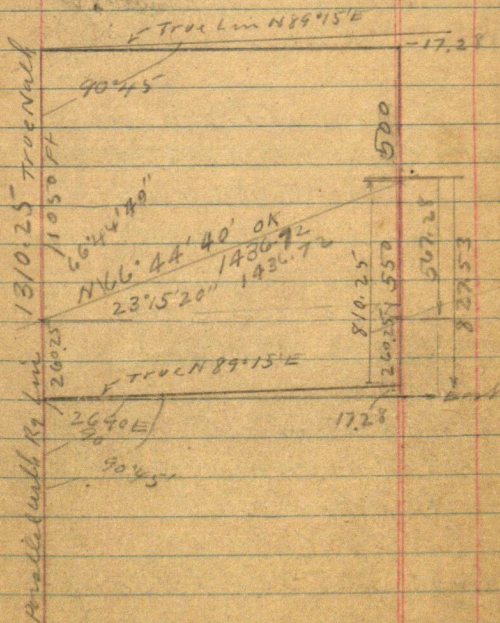 True Lin N 89°15'E
17.28
90°45'
1310.25 True North
1050 Ft
500
66°44'40"
N 66° 44' 40' OK
1436.92
1436.92
23°15'20"
810.25
260.25
550
567.28
827.53
260.25
True N 89°15'E
17.28
90
90°45'
Parallel with Rg Lin